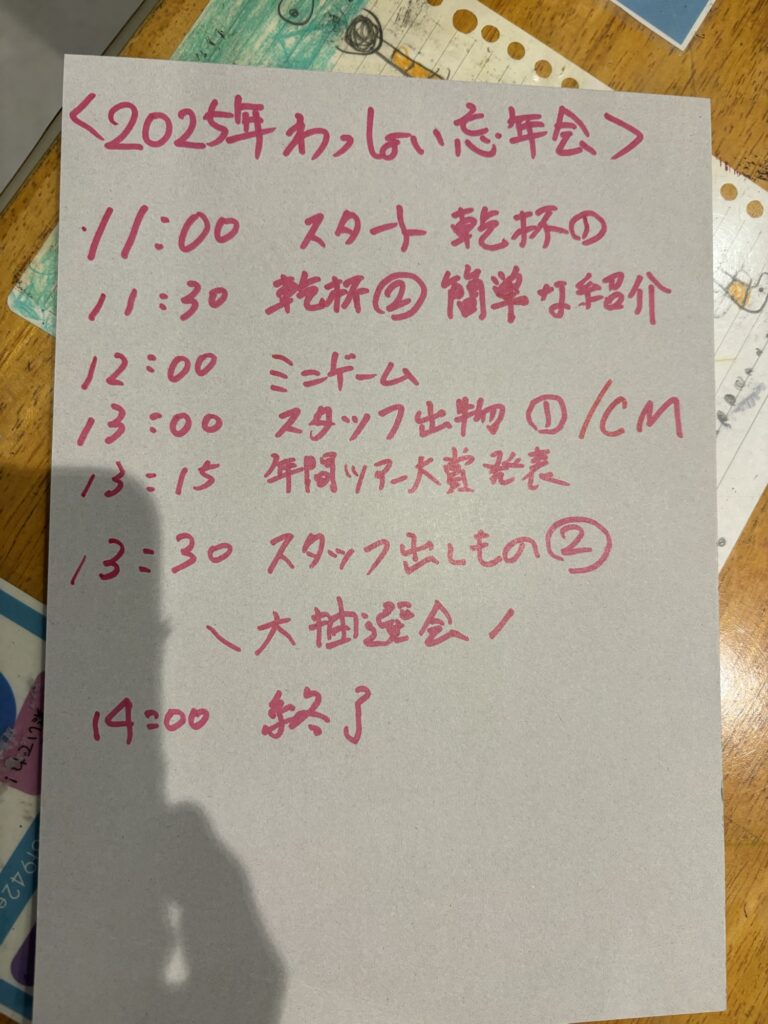 <2025年わっしょい忘年会>
11:00 スタート 乾杯①
11:30 乾杯② 簡単な紹介
12:00 ミニゲーム
13:00 スタッフ出物 ①/CM
13:15 年間ツアー大賞発表
13:30 スタッフ出しもの②
\ 大抽選会 /
14:00 終了